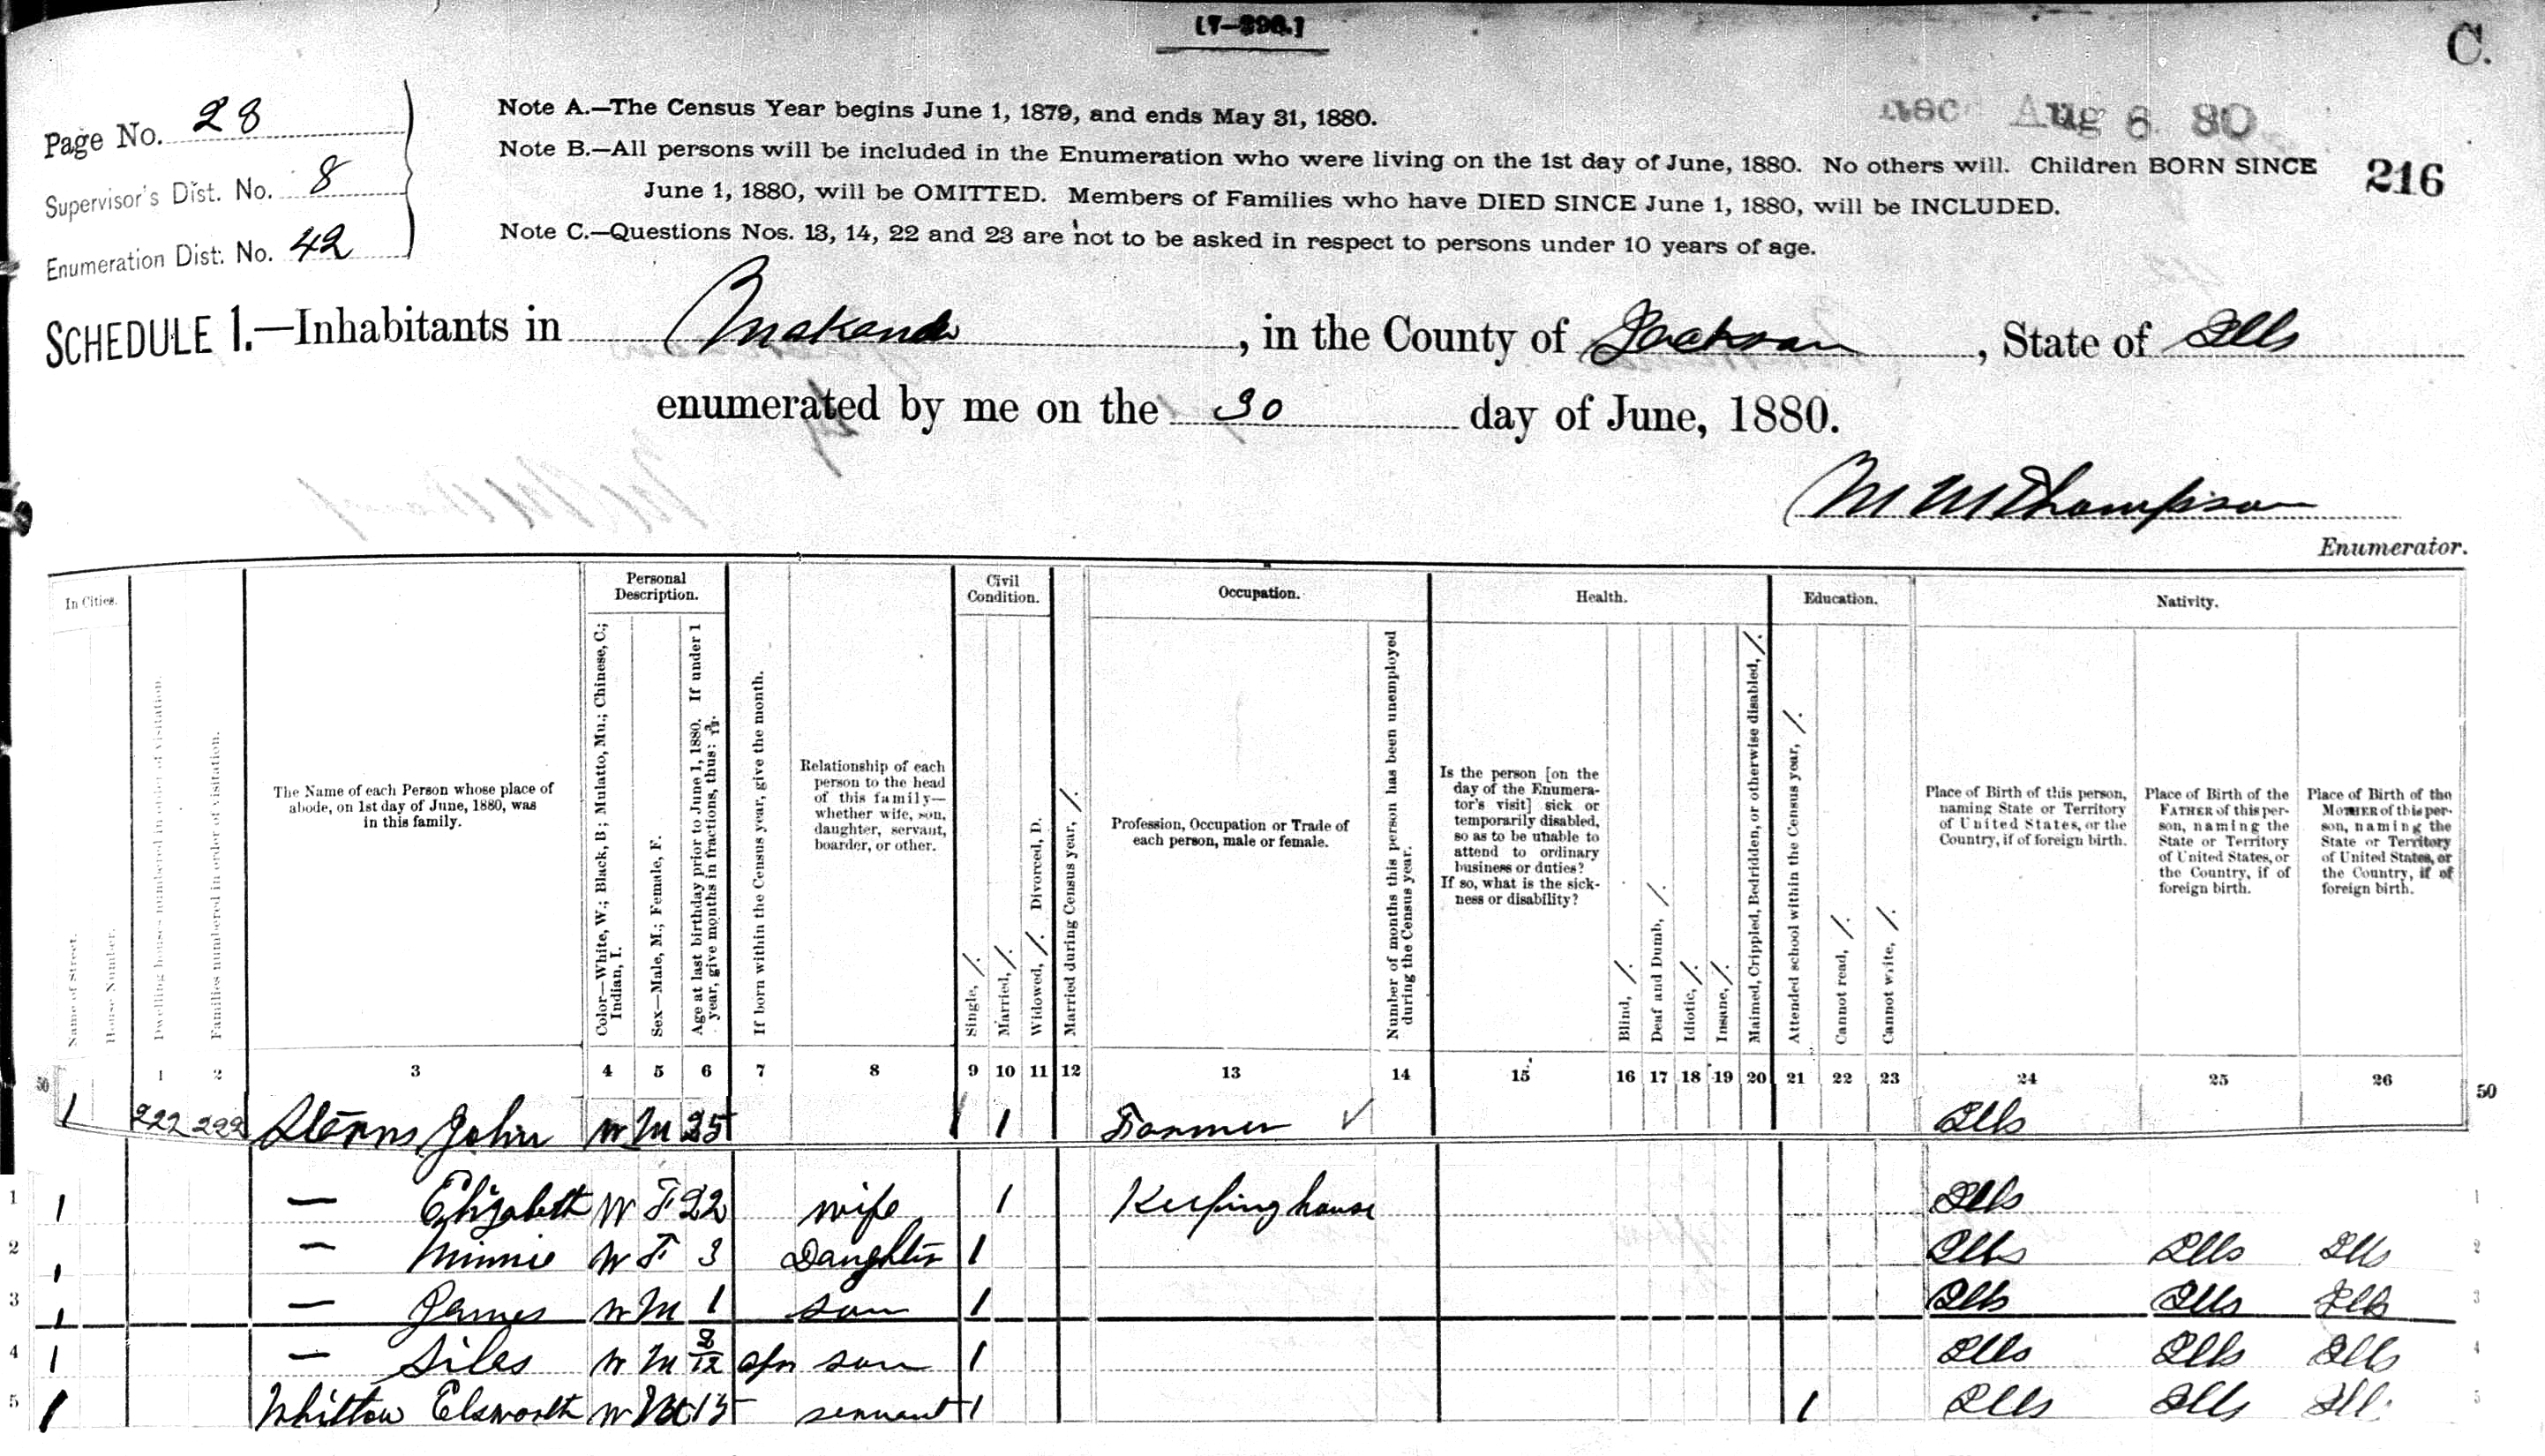 [7-296.]
C.
Page No. 28
Supervisor's Dist. No. 8
Enumeration Dist. No. 42
Note A.—The Census Year begins June 1, 1879, and ends May 31, 1880.
Note B.—All persons will be included in the Enumeration who were living on the 1st day of June, 1880. No others will. Children BORN SINCE
June 1, 1880, will be OMITTED. Members of Families who have DIED SINCE June 1, 1880, will be INCLUDED.
Note C.—Questions Nos. 13, 14, 22 and 23 are not to be asked in respect to persons under 10 years of age.
Aug 6 80
216
SCHEDULE 1.—Inhabitants in Makanda, in the County of Jackson, State of Ills
enumerated by me on the 30 day of June, 1880.
M M Thompson
Enumerator.
In Cities.
Name of Street.
House Number.
Dwelling houses numbered in order of visitation.
Families numbered in order of visitation.
The Name of each Person whose place of
abode, on 1st day of June, 1880, was
in this family.
Personal
Description.
Color—White, W.; Black, B; Mulatto, Mu.; Chinese, C.;
Indian, I.
Sex—Male, M.; Female, F.
Age at last birthday prior to June 1, 1880. If under 1
year, give months in fractions, thus: 3/12.
If born within the Census year, give the month.
Relationship of each
person to the head
of this family—
whether wife, son,
daughter, servant,
boarder, or other.
Civil
Condition.
Single, /.
Married, /.
Widowed, /. Divorced, D.
Married during Census year, /.
Occupation.
Profession, Occupation or Trade of
each person, male or female.
Number of months this person has been unemployed
during the Census year.
Health.
Is the person [on the
day of the Enumera-
tor's visit] sick or
temporarily disabled,
so as to be unable to
attend to ordinary
business or duties?
If so, what is the sick-
ness or disability?
Blind, /.
Deaf and Dumb, /.
Idiotic, /.
Insane, /.
Maimed, Crippled, Bedridden, or otherwise disabled, /.
Education.
Attended school within the Census year, /.
Cannot read, /.
Cannot write, /.
Nativity.
Place of Birth of this person,
naming State or Territory
of United States, or the
Country, if of foreign birth.
Place of Birth of the
FATHER of this per-
son, naming the
State or Territory
of United States, or
the Country, if of
foreign birth.
Place of Birth of the
MOTHER of this per-
son, naming the
State or Territory
of United States, or
the Country, if of
foreign birth.
1 2 3 4 5 6 7 8 9 10 11 12 13 14 15 16 17 18 19 20 21 22 23 24 25 26
50 1 222 222 Sterns John W M 25 1 Farmer ✓ Ills 50
1 1 — Elizabeth W F 22 wife 1 Keeping house Ills 1
2 1 — Minnie W F 3 Daughter 1 Ills Ills Ills 2
3 1 — James W M 1 son 1 Ills Ills Ills 3
4 1 — Siles W M 2/12 apr son 1 Ills Ills Ills 4
5 1 Whitton Elsworth W M 15 servant 1 1 Ills Ills Ill 5